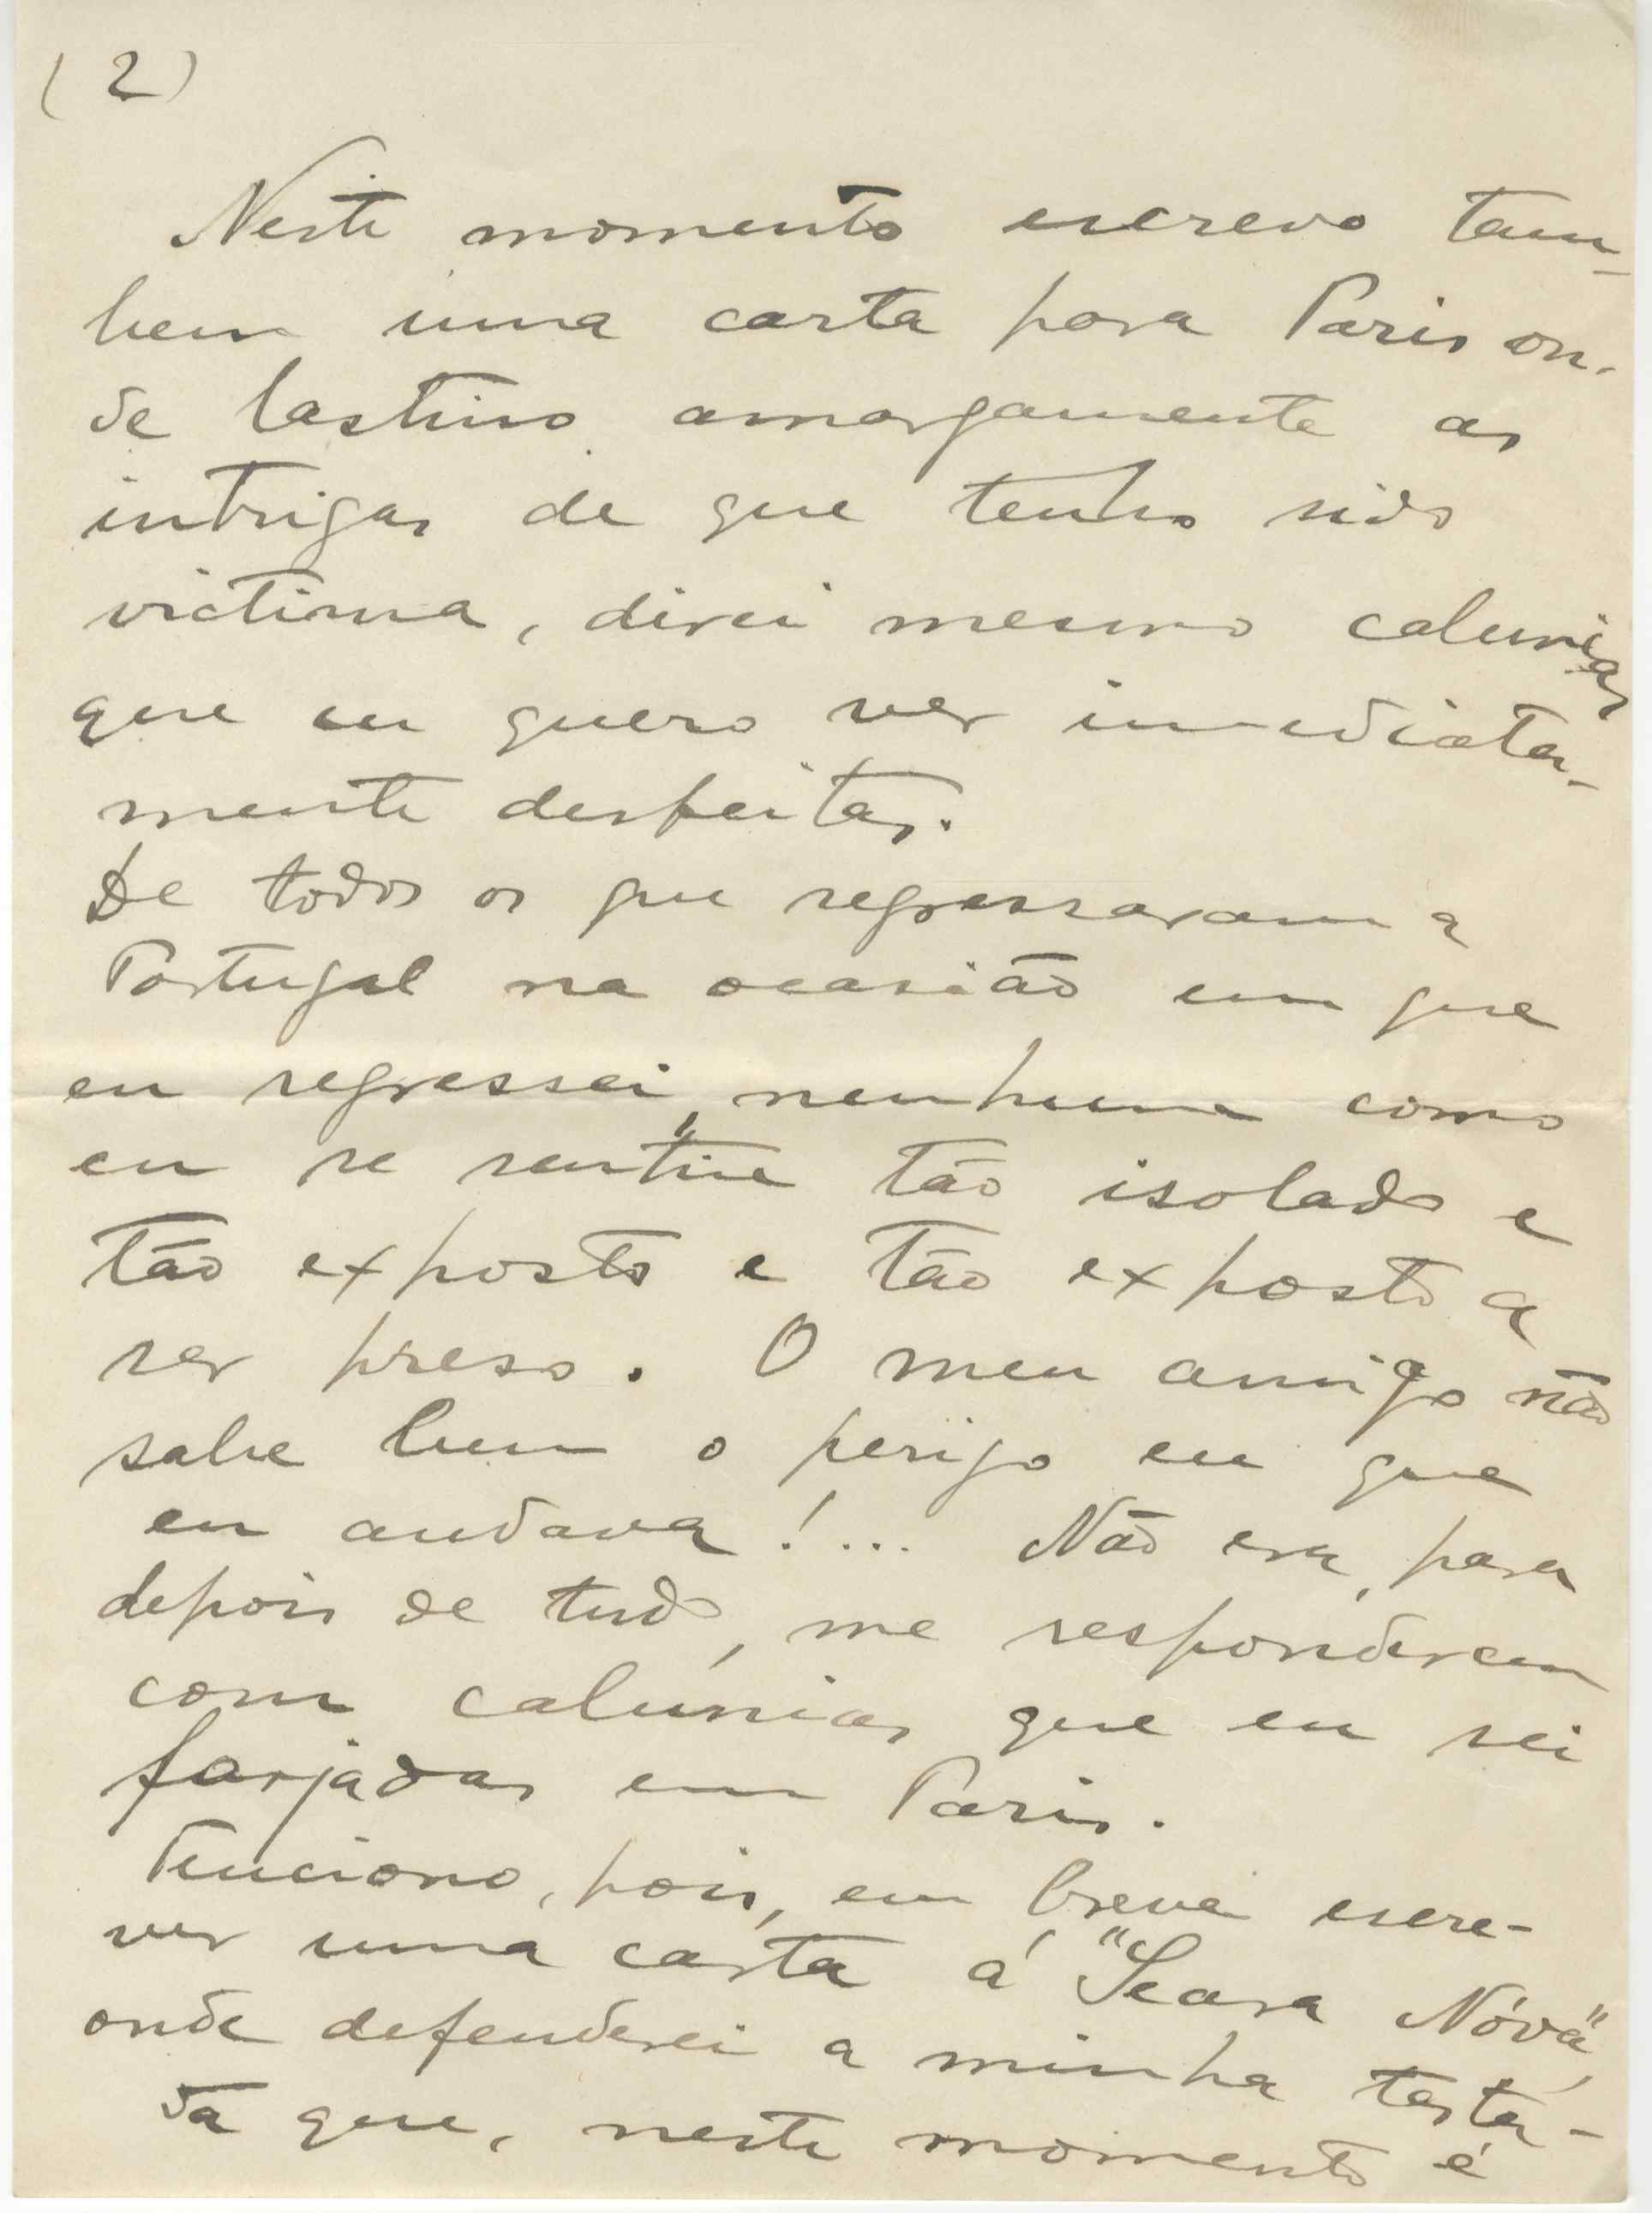 (2)
Neste momento escrevo tam-
bem uma carta para Paris on-
de lastimo amargamente as
intrigas de que tenho sido
victima, direi mesmo calunias
que eu quero ver imediata-
mente desfeitas.
De todos os que regressaram a
Portugal na ocasião em que
eu regressei, nenhum como
eu se sentiu tão isolado e
tão exposto e tão exposto a
ser preso. O meu amigo não
sabe bem o perigo em que
eu andava!... Não era, para
depois de tudo, me responderem
com calúnias que eu sei
forjadas em Paris.
Tenciono, pois, em breve escre-
ver uma carta á "Seara Nóva",
onde defenderei a minha
que, neste momento é